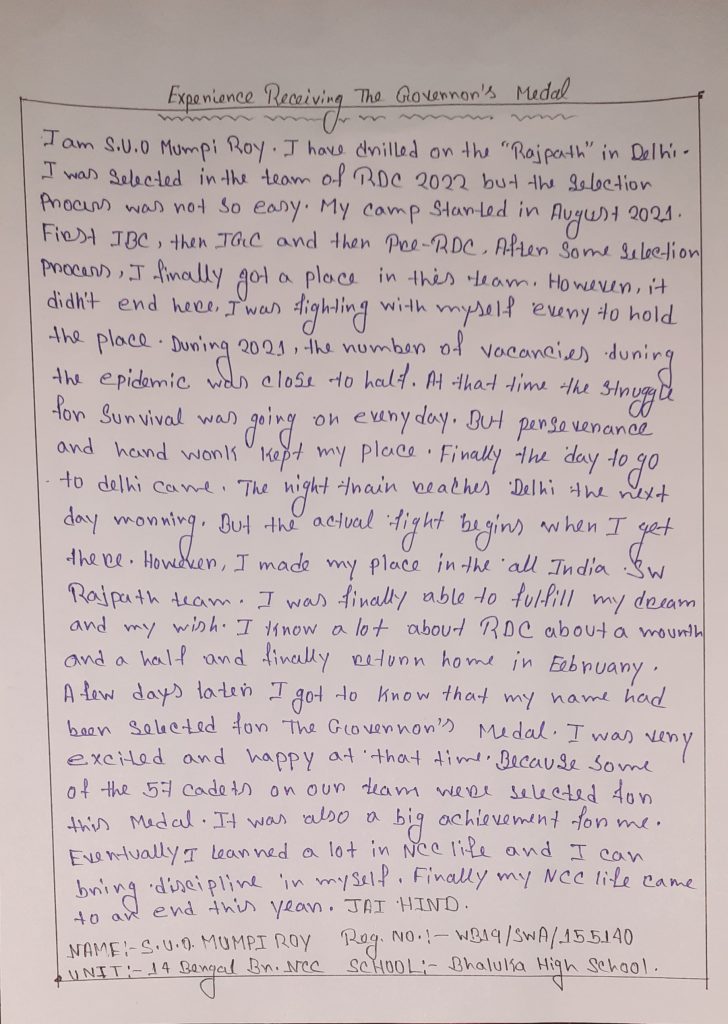 Experience Receiving The Governor's Medal
I am S.U.O Mumpi Roy. I have drilled on the "Rajpath" in Delhi.
I was selected in the team of RDC 2022 but the selection
Process was not so easy. My camp started in August 2021.
First IBC, then IGC and then Pre-RDC. After some selection
process, I finally got a place in this team. However, it
didn't end here. I was fighting with myself every to hold
the place. During 2021, the number of vacancies during
the epidemic was close to half. At that time the struggle
for survival was going on everyday. But perseverance
and hard work kept my place. Finally the day to go
to delhi came. The night train reaches Delhi the next
day morning. But the actual fight begins when I get
there. However, I made my place in the all India SW
Rajpath team. I was finally able to fulfill my dream
and my wish. I know a lot about RDC about a mounth
and a half and finally return home in Eebruary.
A few days later I got to know that my name had
been selected for The Governor's Medal. I was very
excited and happy at that time. Because some
of the 57 cadets on our team were selected for
this Medal. It was also a big achievement for me.
Eventually I learned a lot in NCC life and I can
bring discipline in myself. Finally my NCC life came
to an end this year. JAI HIND.
NAME:- S.U.O. MUMPI ROY Reg. NO.:- WB19/SWA/155140
UNIT:- 14 Bengal Bn. NCC SCHOOL:- Bhaluka High School.